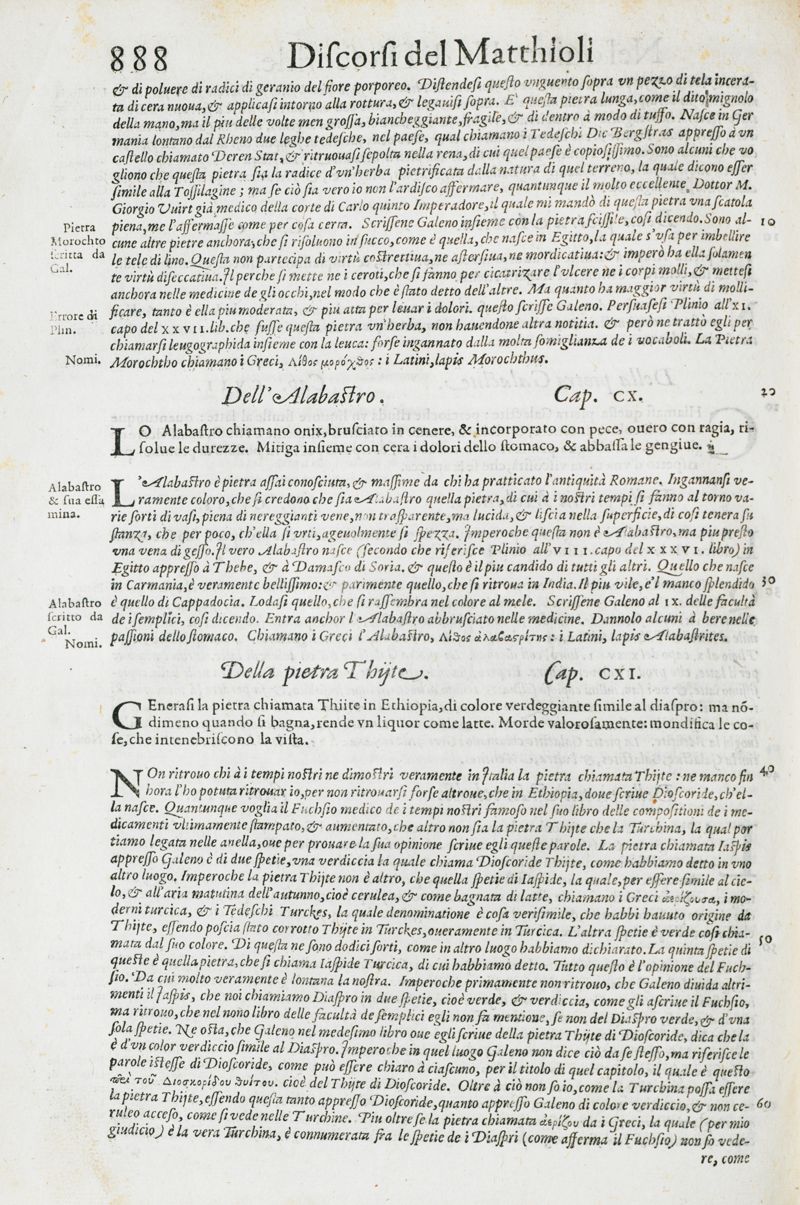 888 Discorsi del Matthioli
& di poluere di radici di geranio del fiore porporeo. Distendesi questo vnguento sopra vn pezzo di tela incera-
ta di cera nuoua, & applicasi intorno alla rottura, & legauisi sopra. E' questa pietra lunga, come il dito mignolo
della mano, ma il piu delle volte men grossa, biancheggiante, fragile, & di dentro à modo di tuffo. Nasce in Ger
mania lontano dal Rheno due leghe tedesche, nel paese, qual chiamano i Tedeschi Die Bergstras appresso à vn
castello chiamato Deren Stat, & ritruouasi sepolta nella rena, di cui quel paese è copiosissimo. Sono alcuni che vo
gliono che questa pietra sia la radice d'vn'herba pietrificata dalla natura di quel terreno, la quale dicono esser
simile alla Tossilagine; ma se ciò sia vero io non l'ardisco affermare, quantunque il molto eccellente Dottor M.
Giorgio Vuirt già medico della corte di Carlo quinto Imperadore, il quale mi mandò di questa pietra vna scatola
piena, me l'affermasse come per cosa certa. Scrissene Galeno insieme con la pietra scissile, cosi dicendo. Sono al- 10
Pietra Morochto scritta da Gal.
cune altre pietre anchora, che si risoluono in succo, come è quella, che nasce in Egitto, la quale s'vsa per imbellire
le tele di lino. Questa non partecipa di virtù costrettiua, ne astersiua, ne mordicatiua: & imperò ha ella solamen
te virtù diseccatiua. Il perche si mette ne i ceroti, che si fanno per cicatrizare l'vlcere ne i corpi molli, & mettesi
anchora nelle medicine de gli occhi, nel modo che è stato detto dell'altre. Ma quanto ha maggior virtù di molli-
Errore di Plin.
ficare, tanto è ella piu moderata, & piu atta per leuar i dolori. questo scrisse Galeno. Persuasesi Plinio all'XI.
capo del XXVII. lib. che fusse questa pietra vn'herba, non hauendone altra notitia. & però ne trattò egli per
chiamarsi leugographida insieme con la leuca: forse ingannato dalla molta somiglianza de i vocaboli. La Pietra
Nomi. Morochtho chiamano i Greci, Λίθος μορόχθος: i Latini, lapis Morochthus.
Dell'Alabastro. Cap. CX. 20
LO Alabastro chiamano onix, brusciato in cenere, & incorporato con pece, ouero con ragia, ri-
solue le durezze. Mitiga insieme con cera i dolori dello stomaco, & abbassa le gengiue.
Alabastro & sua essa mina.
L'Alabastro è pietra assai conosciuta, & massime da chi ha pratticato l'antiquità Romane. Ingannansi ve-
ramente coloro, che si credono che sia Alabastro quella pietra, di cui à i nostri tempi si fanno al torno va-
rie sorti di vasi, piena di nereggianti vene, non trasparente, ma lucida, & liscia nella superficie, di cosi tenera su
stanza, che per poco, ch'ella si vrti, ageuolmente si spezza. Imperoche questa non è Alabastro, ma piu presto
vna vena di gesso. Il vero Alabastro nasce (secondo che riferisce Plinio all'VIII. capo del XXXVI. libro) in
Egitto appresso à Thebe, & à Damasco di Soria. & questo è il piu candido di tutti gli altri. Quello che nasce
in Carmania, è veramente bellissimo: & parimente quello, che si ritroua in India. Il piu vile, e'l manco splendido 30
Alabastro scritto da Gal.
è quello di Cappadocia. Lodasi quello, che si rassembra nel colore al mele. Scrissene Galeno al IX. delle facultà
de i semplici, cosi dicendo. Entra anchor l'Alabastro abbrusciato nelle medicine. Dannolo alcuni à bere nelle
Nomi. passioni dello stomaco. Chiamano i Greci l'Alabastro, Λίθος ἀλαβαστρίτης: i Latini, lapis Alabastrites.
Della pietra Thijte. Cap. CXI.
GEnerasi la pietra chiamata Thiite in Ethiopia, di colore verdeggiante simile al diaspro: ma nõ-
dimeno quando si bagna, rende vn liquor come latte. Morde valorosamente: mondifica le co-
se, che intenebriscono la vista.
NOn ritrouo chi à i tempi nostri ne dimostri veramente in Italia la pietra chiamata Thijte: ne manco fin 40
hora l'ho potuta ritrouar io, per non ritrouarsi forse altroue, che in Ethiopia, doue scriue Dioscoride, ch'el-
la nasce. Quantunque voglia il Fuchsio medico de i tempi nostri famoso nel suo libro delle compositioni de i me-
dicamenti vltimamente stampato, & aumentato, che altro non sia la pietra Thijte che la Turchina, la qual por
tiamo legata nelle anella, oue per prouare la sua opinione scriue egli queste parole. La pietra chiamata Iaspis
appresso Galeno è di due spetie, vna verdiccia la quale chiama Dioscoride Thijte, come habbiamo detto in vno
altro luogo. Imperoche la pietra Thijte non è altro, che quella spetie di Iaspide, la quale, per essere simile al cie-
lo, & all'aria matutina dell'autunno, cioè cerulea, & come bagnata di latte, chiamano i Greci ἀερίζουσα, i mo-
derni turcica, & i Tedeschi Turckes, la quale denominatione è cosa verisimile, che habbi hauuto origine da
Thijte, essendo poscia stato corrotto Thijte in Turckes, oueramente in Turcica. L'altra spetie è verde cosi chia-
mata dal suo colore. Di questa ne sono dodici sorti, come in altro luogo habbiamo dichiarato. La quinta spetie di 50
queste è quella pietra, che si chiama Iaspide Turcica, di cui habbiamo detto. Tutto questo è l'opinione del Fuch-
sio. Da cui molto veramente è lontana la nostra. Imperoche primamente non ritrouo, che Galeno diuida altri-
menti il Iaspis, che noi chiamiamo Diaspro in due spetie, cioè verde, & verdiccia, come gli ascriue il Fuchsio,
ma ritrouo, che nel nono libro delle facultà de semplici egli non fa mentione, se non del Diaspro verde, & d'vna
sola spetie. Ne osta, che Galeno nel medesimo libro oue egli scriue della pietra Thijte di Dioscoride, dica che la
è d'vn color verdiccio simile al Diaspro. Imperoche in quel luogo Galeno non dice ciò da se stesso, ma riferisce le
parole istesse di Dioscoride, come può essere chiaro à ciascuno, per il titolo di quel capitolo, il quale è questo
περὶ τοῦ Διοσκορίδου θυίτου. cioè del Thijte di Dioscoride. Oltre à ciò non so io, come la Turchina possa essere
la pietra Thijte, essendo questa tanto appresso Dioscoride, quanto appresso Galeno di colore verdiccio, & non ce- 60
ruleo acceso, come si vede nelle Turchine. Piu oltre se la pietra chiamata ἀερίζου da i Greci, la quale (per mio
giudicio) è la vera Turchina, è connumerata fra le spetie de i Diaspri (come afferma il Fuchsio) non so vede-
re, come